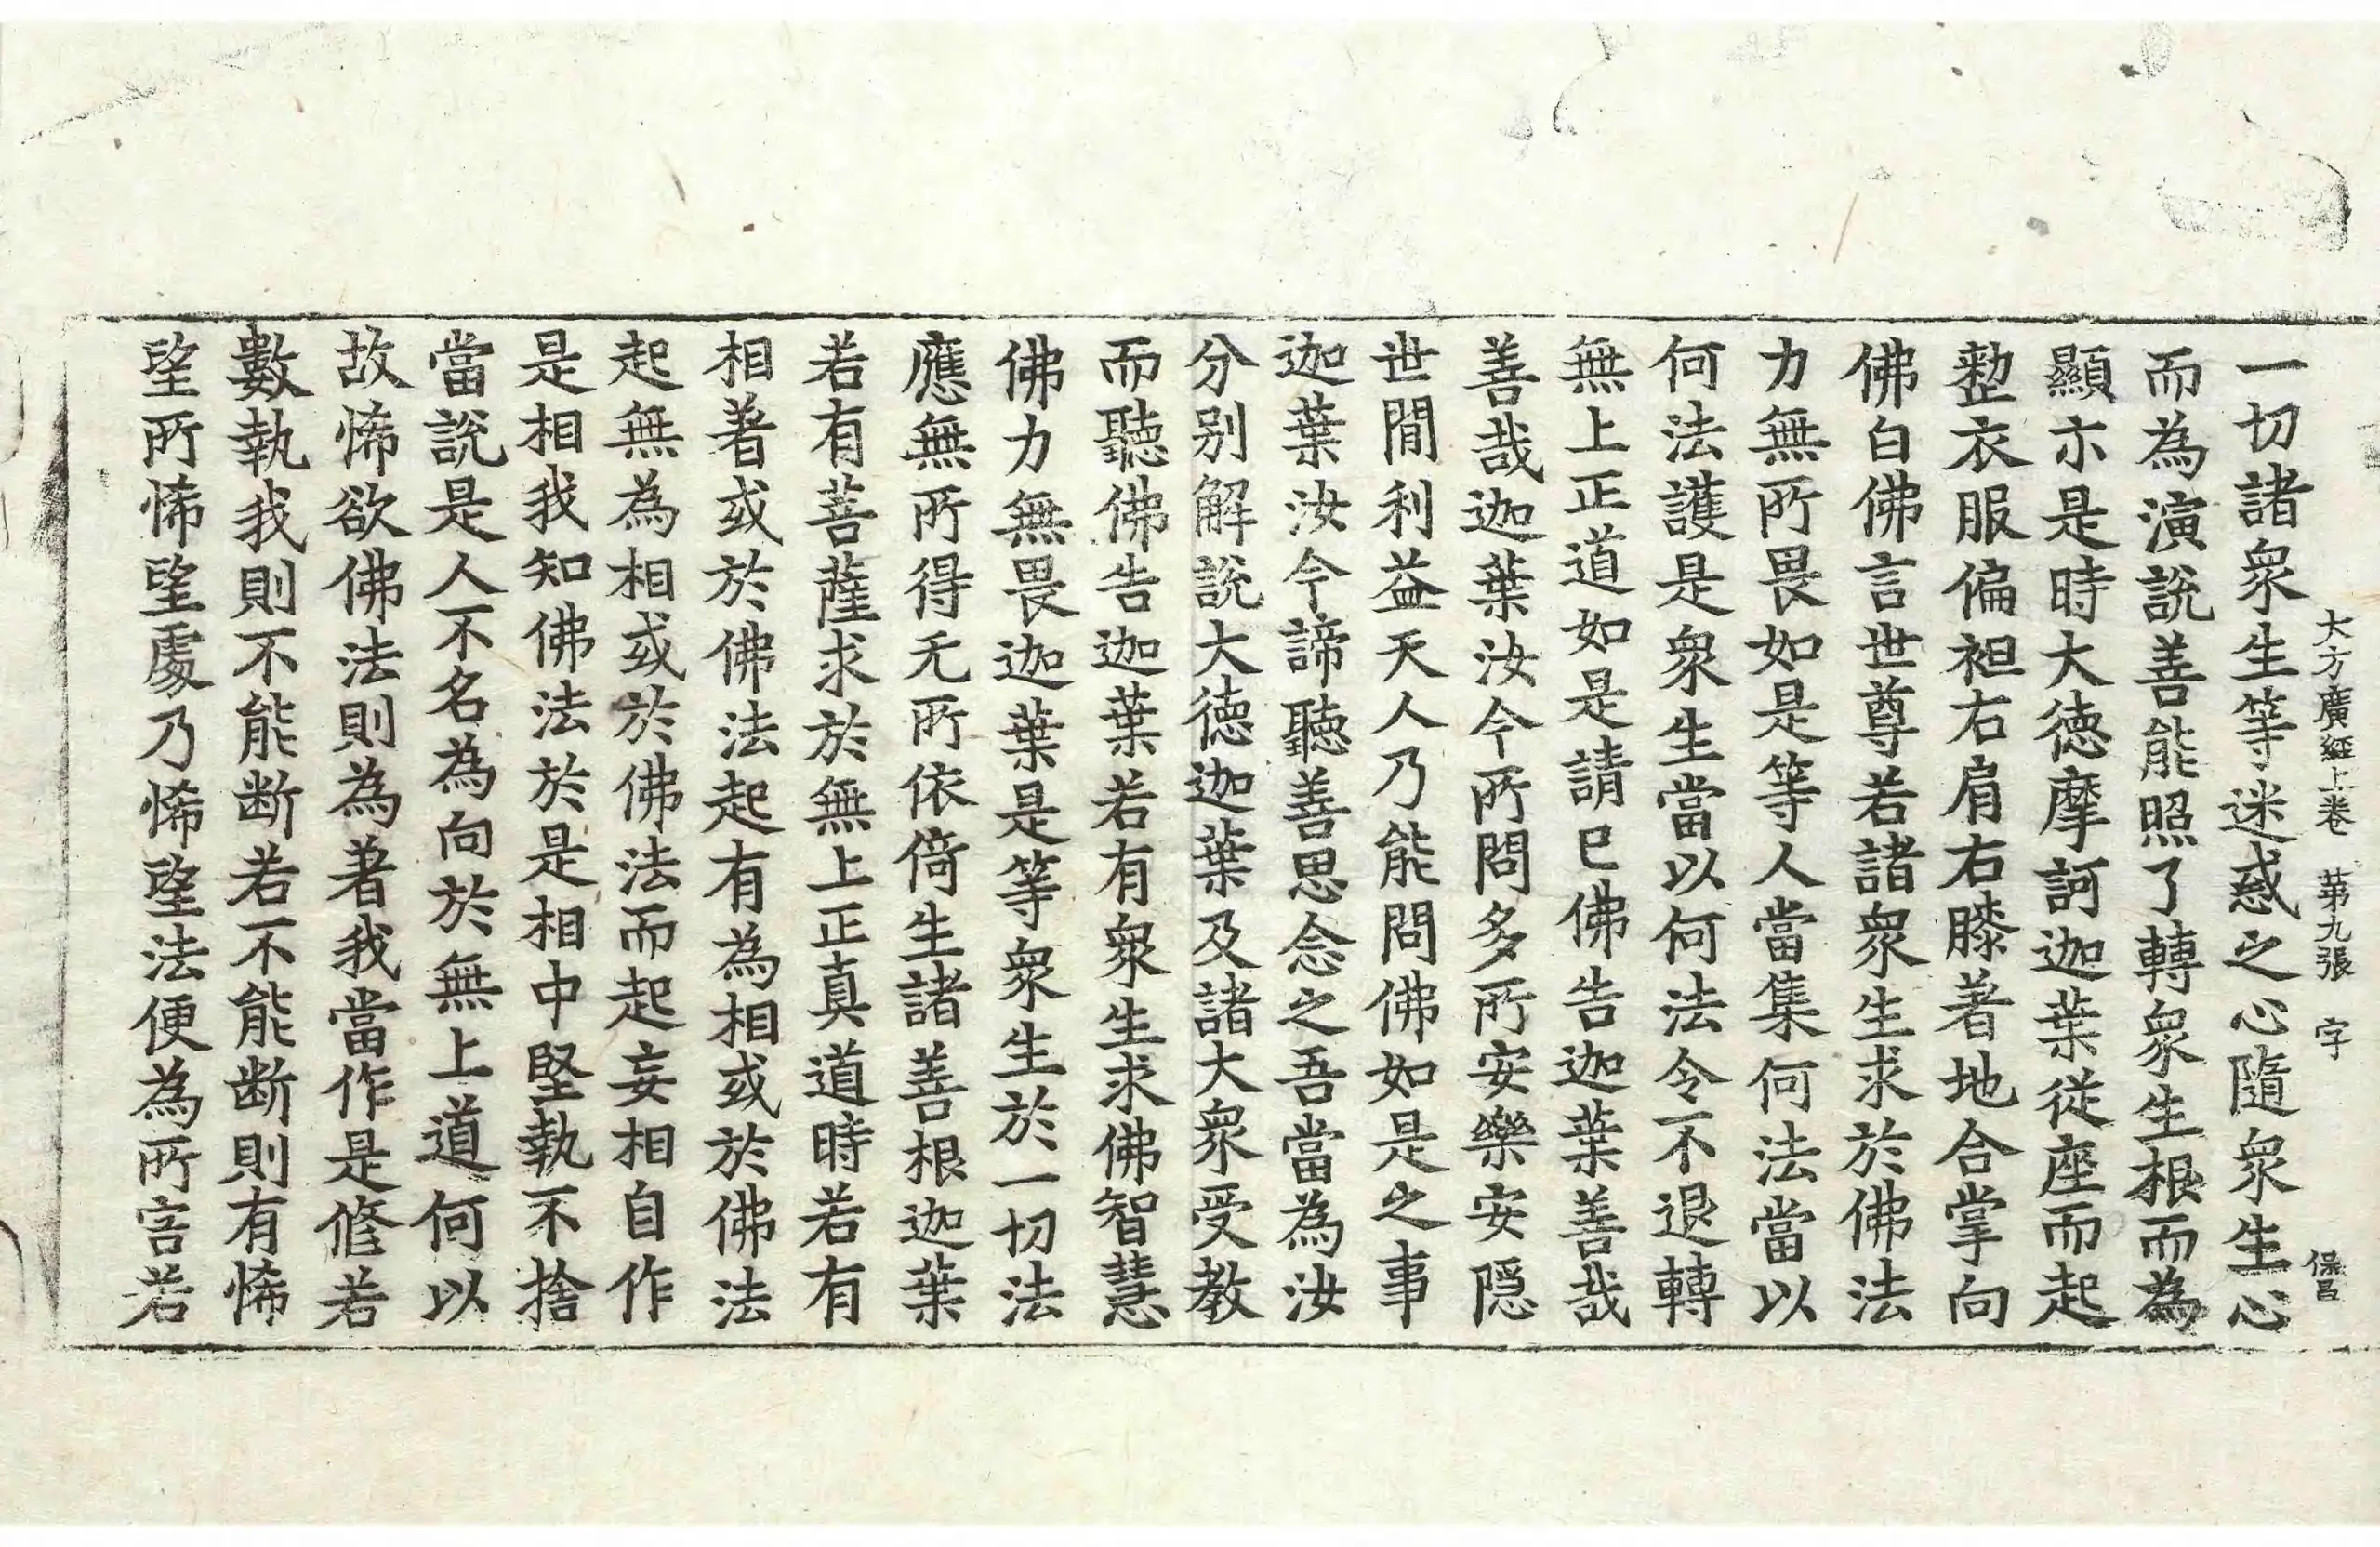 大方廣經上卷 第九張 字 保昌
一切諸衆生等迷惑之心隨衆生心
而為演說善能照了轉衆生根而為
顯示是時大德摩訶迦葉從座而起
整衣服偏袒右肩右膝著地合掌向
佛白佛言世尊若諸衆生求於佛法
力無所畏如是等人當集何法當以
何法護是衆生當以何法令不退轉
無上正道如是請已佛告迦葉善哉
善哉迦葉汝今所問多所安樂安隱
世間利益天人乃能問佛如是之事
迦葉汝今諦聽善思念之吾當為汝
分別解說大德迦葉及諸大衆受教
而聽佛告迦葉若有衆生求佛智慧
佛力無畏迦葉是等衆生於一切法
應無所得无所依倚生諸善根迦葉
若有菩薩求於無上正真道時若有
相著或於佛法起有為相或於佛法
起無為相或於佛法而起妄相自作
是相我知佛法於是相中堅執不捨
當說是人不名為向於無上道何以
故悕欲佛法則為著我當作是修若
數執我則不能断若不能断則有悕
望所悕望處乃悕望法便為所害若